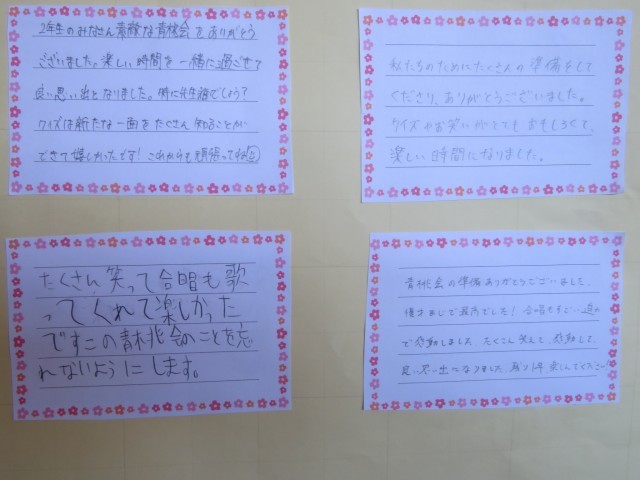 2年生のみなさん素敵な青桃会をありがとう
ございました。楽しい時間を一緒に過ごせて
良い思い出となりました。特に先生誰でしょう?
クイズは新たな一面をたくさん知ることが
できて嬉しかったです!これからも頑張ってね
私たちのためにたくさんの準備をして
くださり、ありがとうございました。
クイズやお笑いがとてもおもしろくて、
楽しい時間になりました。
たくさん笑って合唱も歌
ってくれて楽しかった
ですこの青桃会のことを忘
れないようにします。
青桃会の準備ありがとうございました。
最高でした!合唱もすごい迫力
で感動しました。たくさん笑えて、感動して、
良い思い出になりました。あと1年楽しんでください!